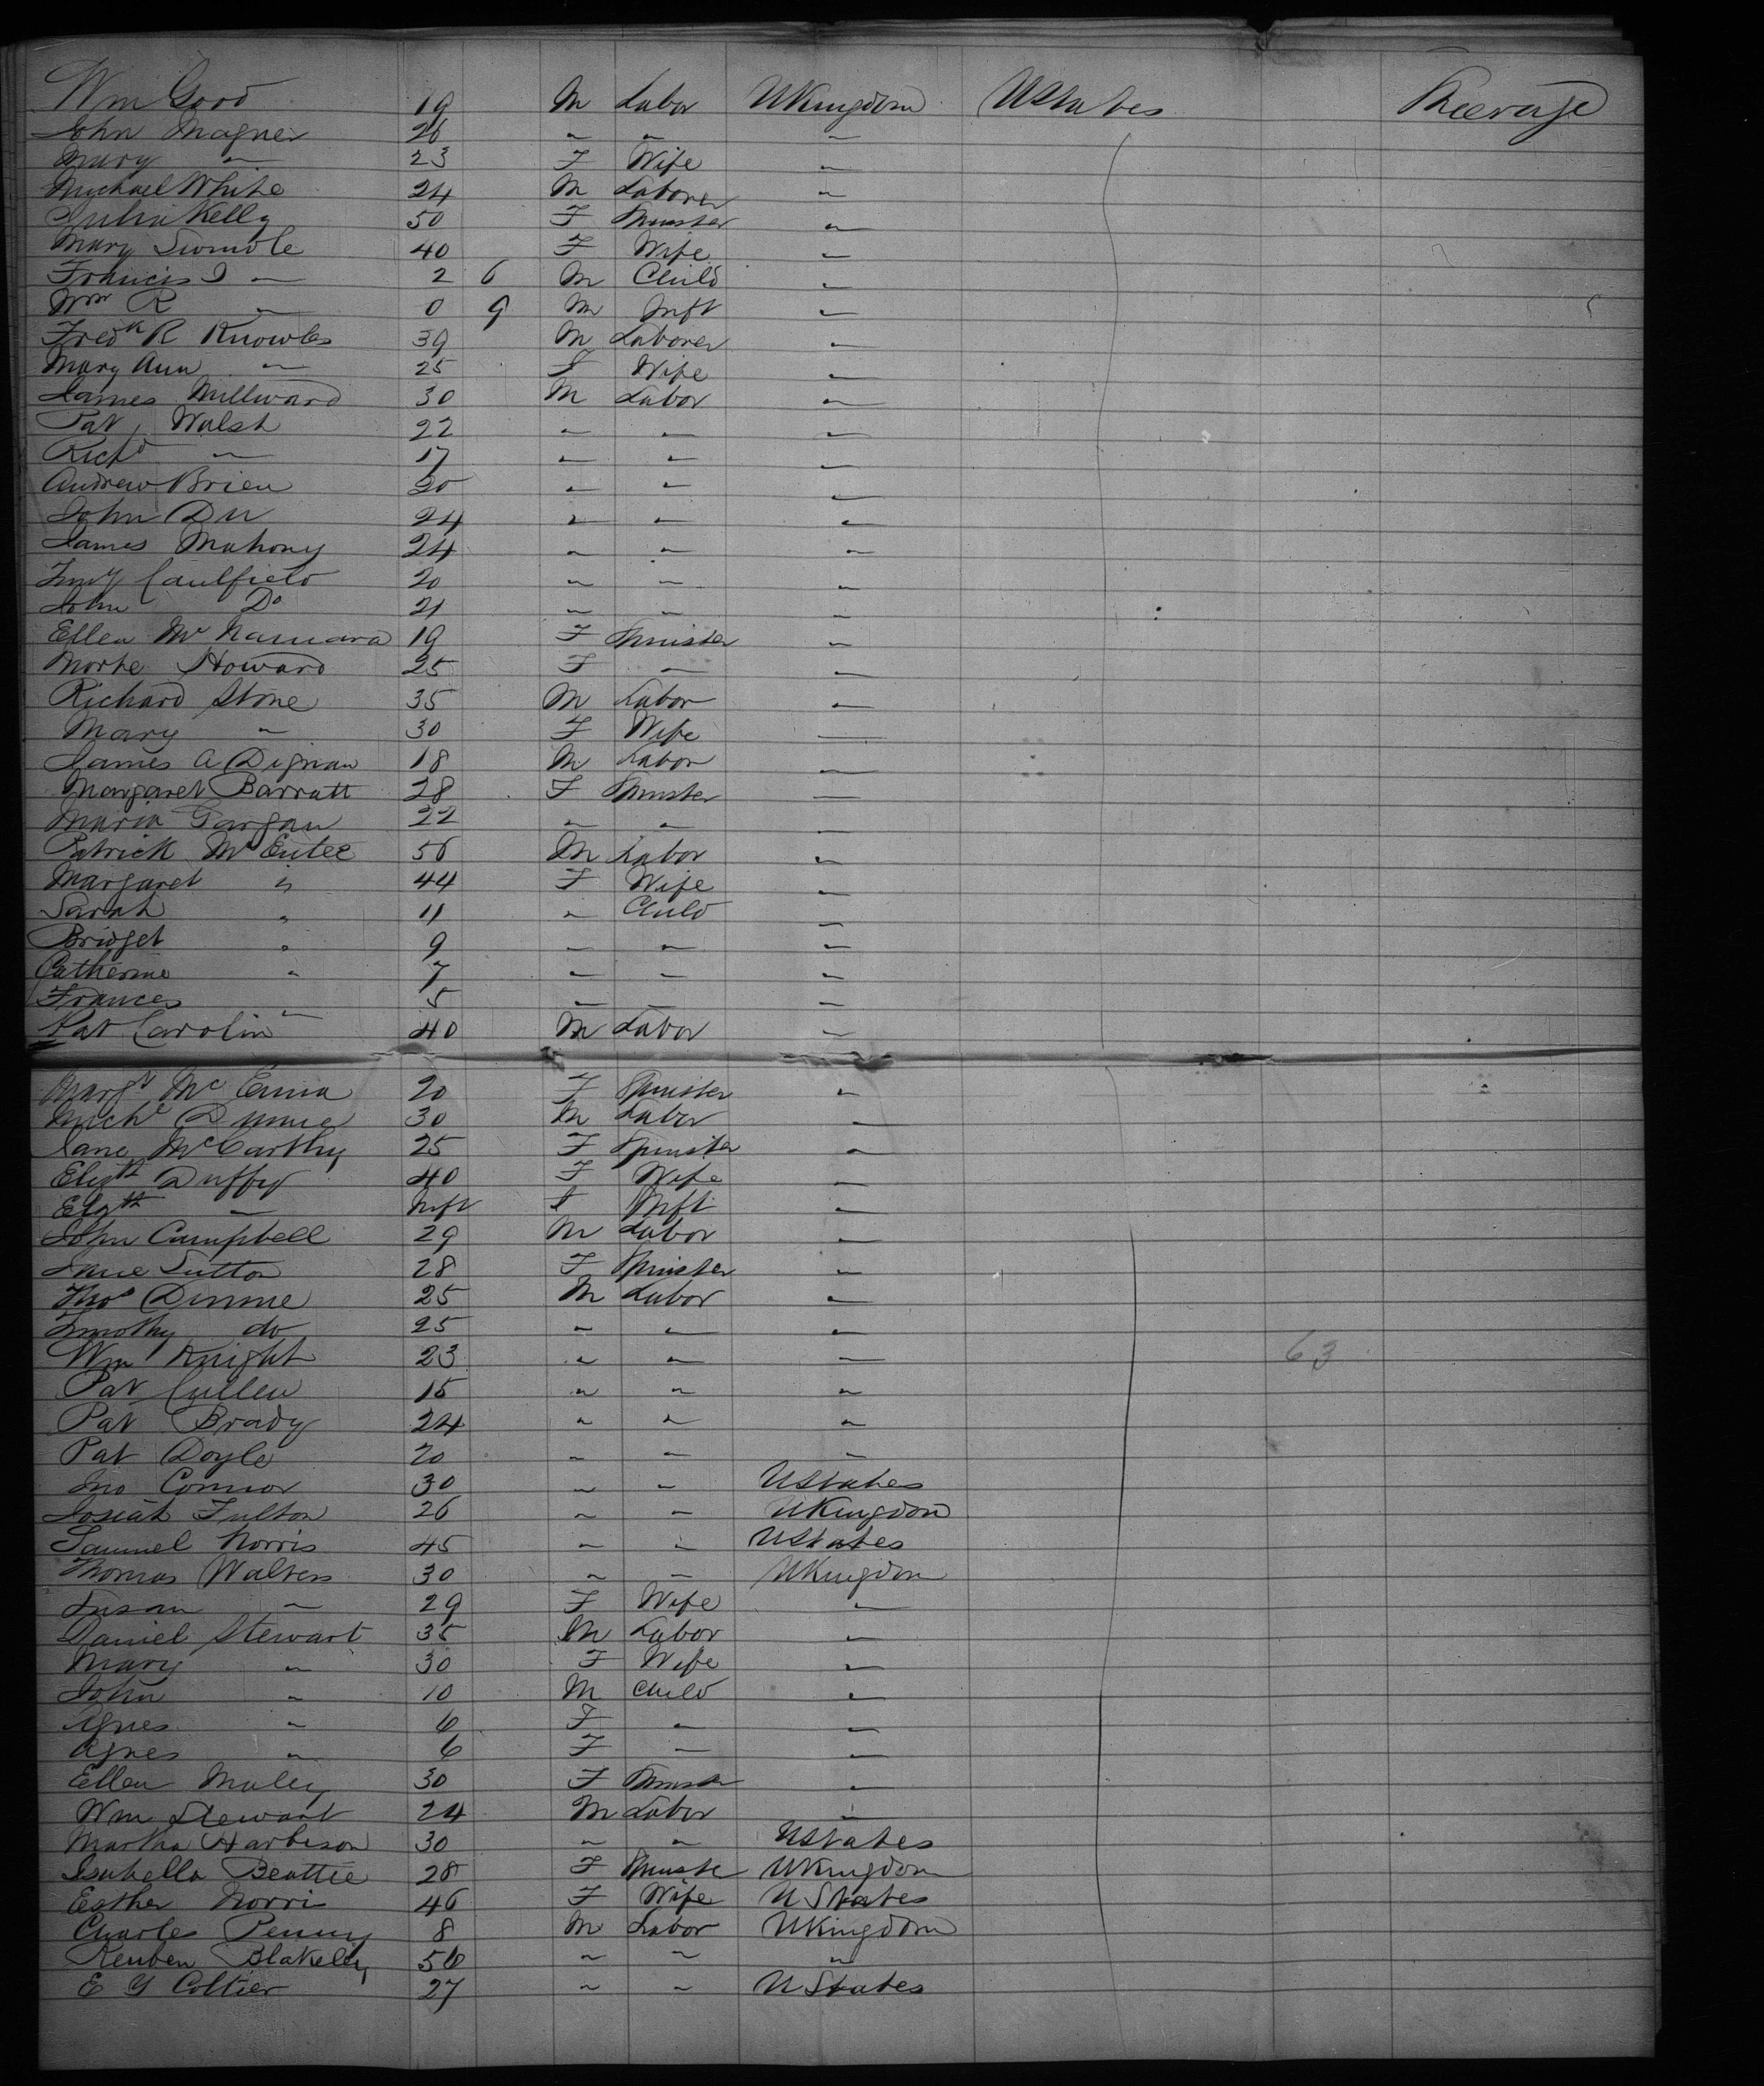 Wm Good 19 M Labor UKingdom UStates Steerage
John Magner 26 " " "
Mary " 23 F Wife "
Michael White 24 M Laborer "
Julia Kelly 50 F Spinster "
Mary 40 F Wife "
Francis J " 2 6 M Child "
Wm R " 0 9 M Inft "
Fredk R Knowles 39 M Laborer "
Mary Ann " 25 F Wife "
James Millward 30 M Labor "
Pat Walsh 22 " " "
Richd " 17 " " "
Andrew Brien 20 " " "
John 24 " " "
James Mahony 24 " " "
Timy Caulfield 20 " " "
John Do 21 " " "
Ellen McNamara 19 F Spinster "
Howard 25 F " "
Richard Stone 35 M Labor "
Mary " 30 F Wife "
James A Dignan 18 M Labor "
Margaret Barratt 28 F Spinster "
Maria Gargan 22 " " "
Patrick McEntee 56 M Labor "
Margaret " 44 F Wife "
Sarah " 11 " Child "
Bridget " 9 " " "
Catherine " 7 " " "
Frances " 5 " " "
Pat Carolin 40 M Labor "
Margt Mc 20 F Spinster "
Michl Dunne 30 M Labor "
Jane McCarthy 25 F Spinster "
Elizth Duffy 40 F Wife "
Elzth " Inft f Inft "
John Campbell 29 M Labor "
Jane Sutton 28 F Spinster "
Thos Dinme 25 M Labor "
Timothy do 25 " " "
Wm Knight 23 " " " 63
Pat Cullen 15 " " "
Pat Brady 24 " " "
Pat Doyle 20 " " "
Jno Connor 30 " " UStates
Josiah Fulton 26 " " UKingdom
Samuel Norris 45 " " UStates
Thomas Walters 30 " " UKingdom
Susan " 29 F Wife "
Daniel Stewart 35 M Labor "
Mary " 30 F Wife "
John " 10 M Child "
Agnes " 6 F " "
Agnes " 6 F " "
Ellen Maley 30 F Spinster "
Wm Stewart 24 M Labor "
Martha Harbison 30 " " UStates
Isabella Beattie 28 F Spinste UKingdom
Esther Norris 46 F Wife UStates
Charles Penny 8 M Labor UKingdom
Reuben Blakeley 56 " " "
E Y Coltier 27 " " UStates